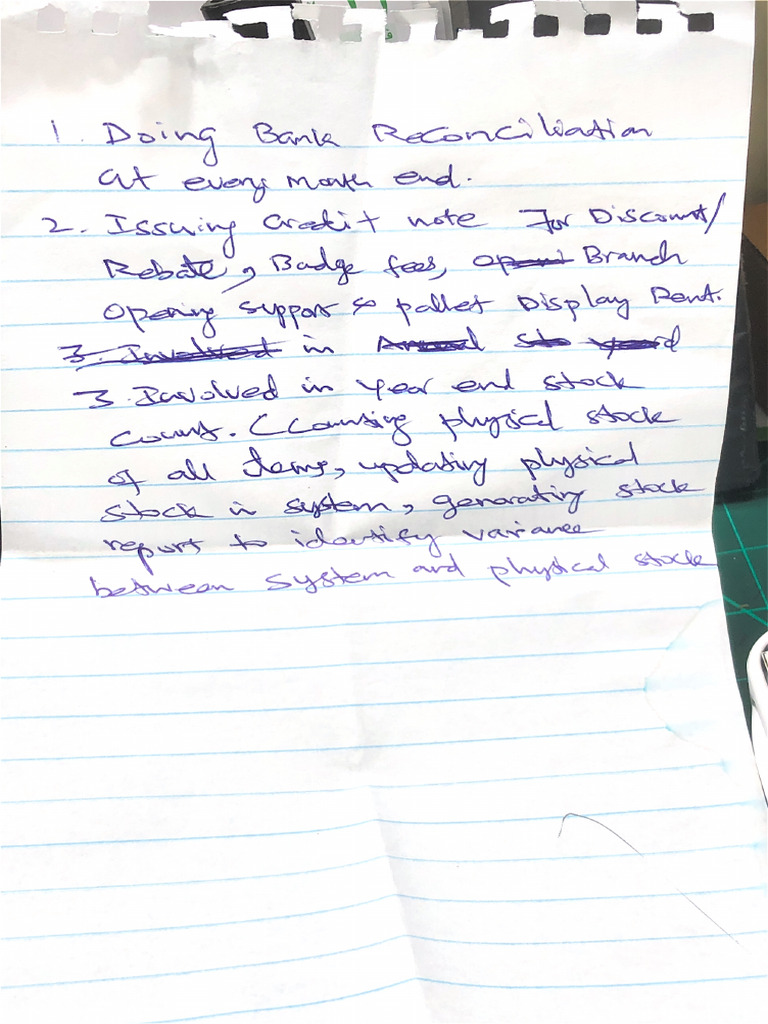 1. Doing Bank Reconciliation
at every month end.
2. Issuing Credit note For Discount/
Rebate, Badge fees, Branch
Opening support & pallet Display Rent.
in
3. Involved in year end stock
count. (Counting physical stock
of all items, updating physical
stock in system, generating stock
report to identify variance
between system and physical stock